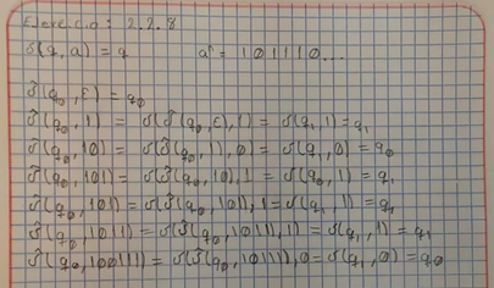 Ejercicio: 2.2.8
δ(q,a) = q     aⁿ = 101110...
δ̂(q₀,ε) = q₀
δ̂(q₀,1) = δ(δ̂(q₀,ε),1) = δ(q₁,1) = q₁
δ̂(q₀,10) = δ(δ̂(q₀,1),0) = δ(q₁,0) = q₀
δ̂(q₀,101) = δ(δ̂(q₀,10),1 = δ(q₀,1) = q₁
δ(q₀,101) = δ(δ̂(q₀,101),1 = δ(q₁,1) = q₁
δ̂(q₀,1011) = δ(δ̂(q₀,1011),1) = δ(q₁,1) = q₁
δ̂(q₀,100111) = δ(δ̂(q₀,10111),0 = δ(q₁,0) = q₀